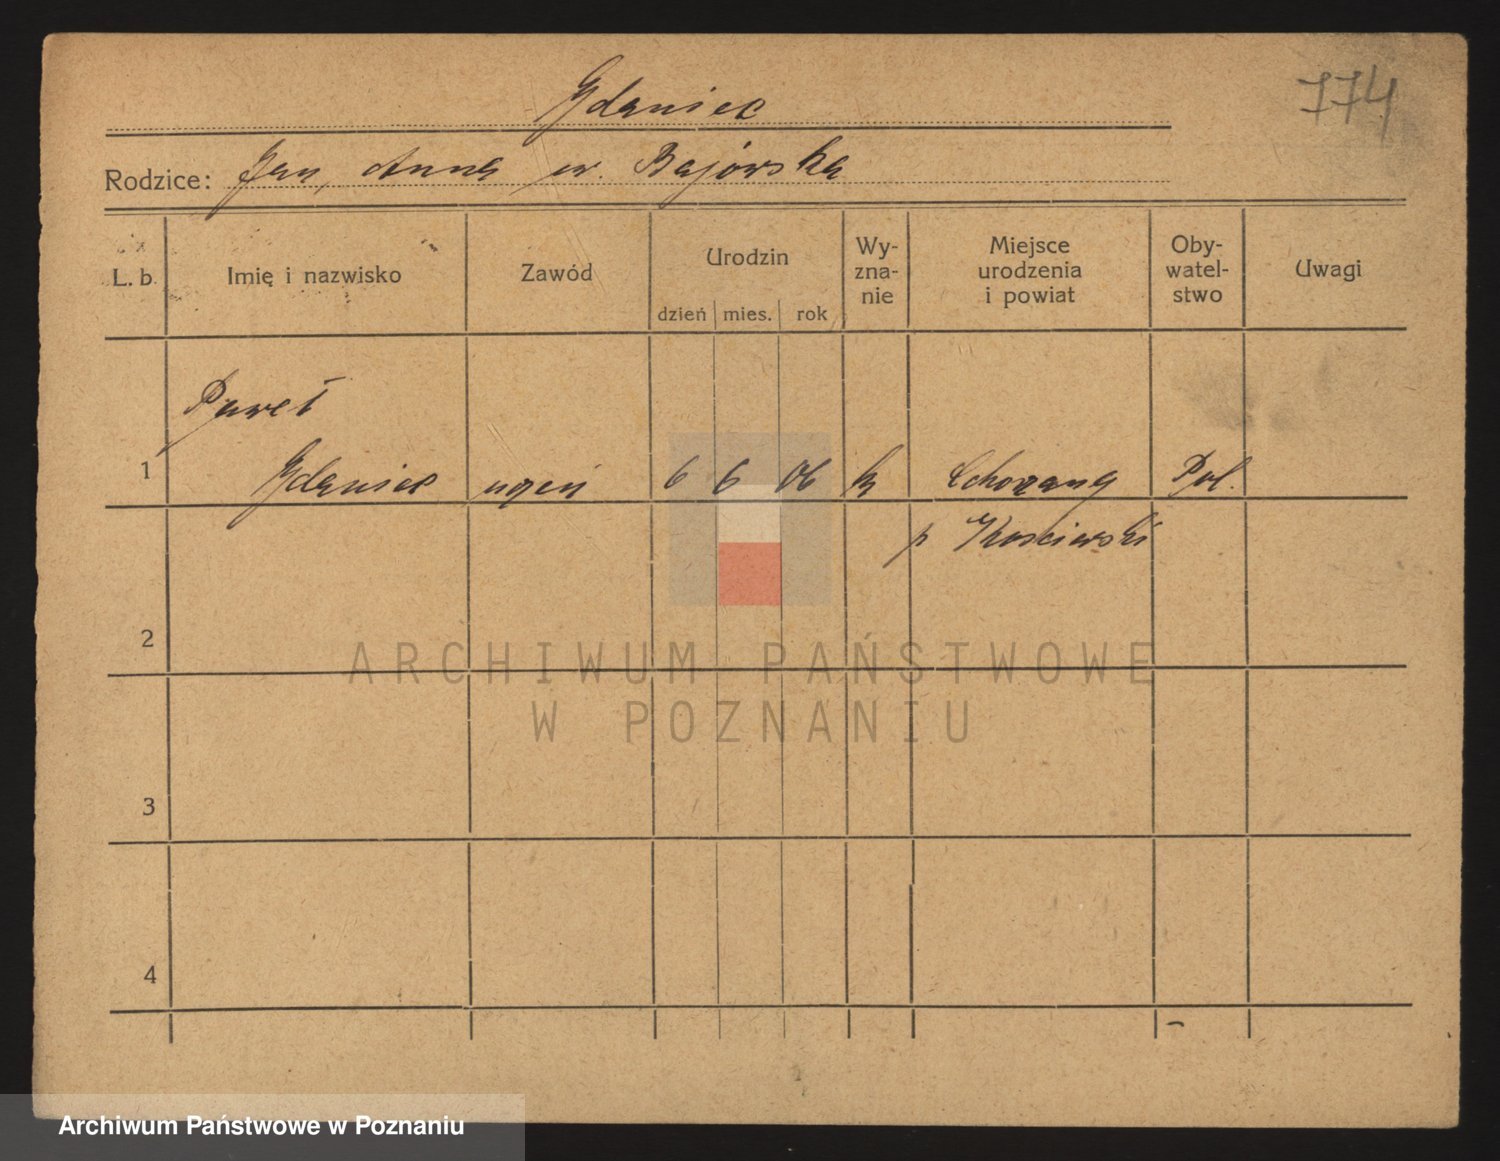 774
Gdaniec
Rodzice: Jan, Anna ur. Bajórska
L. b. Imię i nazwisko Zawód Urodzin dzień mies. rok Wy-zna-nie Miejsce urodzenia i powiat Oby-watel-stwo Uwagi
Paweł
1 Gdaniec uczeń 6 6 06 k Pol.
p Kościerski
2
ARCHIWUM PAŃSTWOWE
W POZNANIU
3
4
Archiwum Państwowe w Poznaniu